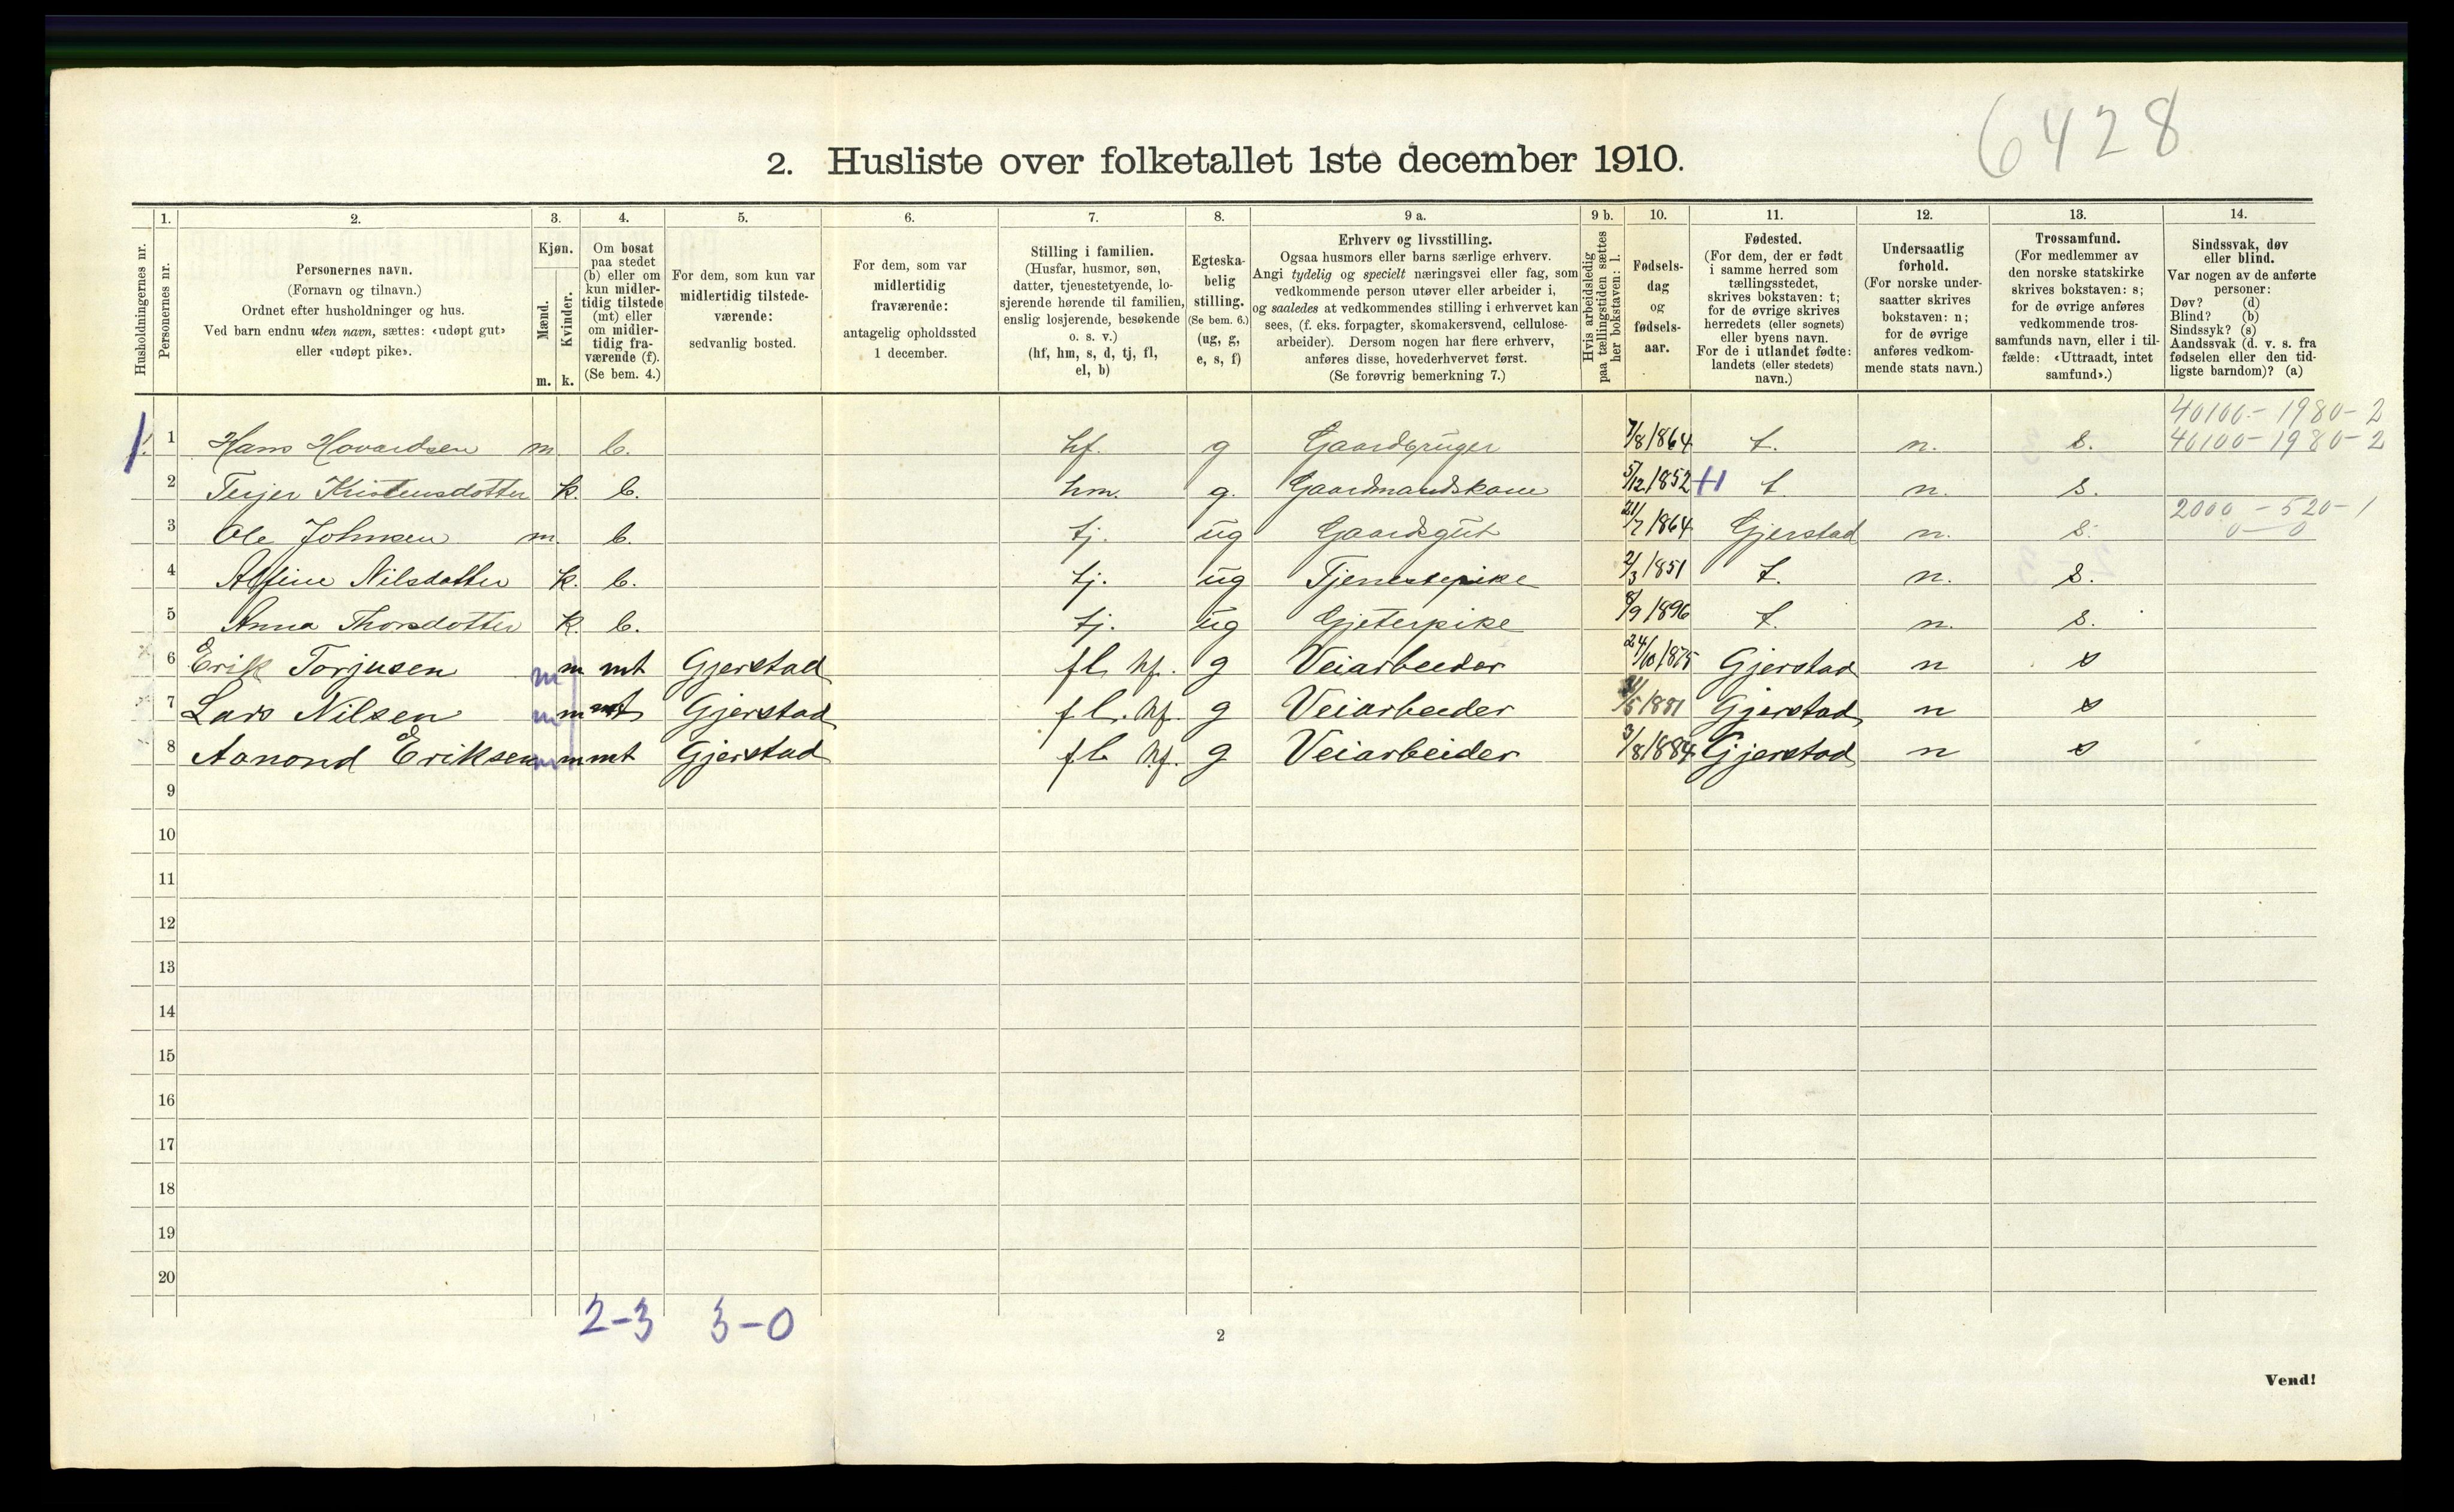 6428
2. Husliste over folketallet 1ste december 1910.
Husholdningernes nr.
1. Personernes nr.
2. Personernes navn. (Fornavn og tilnavn.) Ordnet efter husholdninger og hus. Ved barn endnu uten navn, sættes: «udøpt gut» eller «udøpt pike».
3. Kjøn. Mænd. m. Kvinder. k.
4. Om bosat paa stedet (b) eller om kun midlertidig tilstede (mt) eller om midlertidig fraværende (f). (Se bem. 4.)
5. For dem, som kun var midlertidig tilstedeværende: sedvanlig bosted.
6. For dem, som var midlertidig fraværende: antagelig opholdssted 1 december.
7. Stilling i familien. (Husfar, husmor, søn, datter, tjenestetyende, losjerende hørende til familien, enslig losjerende, besøkende o. s. v.) (hf, hm, s, d, tj, fl, el, b)
8. Egteskabelig stilling. (Se bem. 6.) (ug, g, e, s, f)
9 a. Erhverv og livsstilling. Ogsaa husmors eller barns særlige erhverv. Angi tydelig og specielt næringsvei eller fag, som vedkommende person utøver eller arbeider i, og saaledes at vedkommendes stilling i erhvervet kan sees, (f. eks. forpagter, skomakersvend, cellulosearbeider). Dersom nogen har flere erhverv, anføres disse, hovederhvervet først. (Se forøvrig bemerkning 7.)
9 b. Hvis arbeidsledig paa tællingstiden sættes her bokstaven: l.
10. Fødselsdag og fødselsaar.
11. Fødested. (For dem, der er født i samme herred som tællingsstedet, skrives bokstaven: t; for de øvrige skrives herredets (eller sognets) eller byens navn. For de i utlandet fødte: landets (eller stedets) navn.)
12. Undersaatlig forhold. (For norske undersaatter skrives bokstaven: n; for de øvrige anføres vedkommende stats navn.)
13. Trossamfund. (For medlemmer av den norske statskirke skrives bokstaven: s; for de øvrige anføres vedkommende trossamfunds navn, eller i tilfælde: «Uttraadt, intet samfund».)
14. Sindssvak, døv eller blind. Var nogen av de anførte personer: Døv? (d) Blind? (b) Sindssyk? (s) Aandssvak (d. v. s. fra fødselen eller den tidligste barndom)? (a)
40100 - 1980 - 2
1. 1 Hans Hovardsen m. b. hf. g Gaardbruger 7/8 1864 t. n. s. 40100 - 1980 - 2
2 Terjer Kristensdotter k. b. hm. g. Gaardmandskone 5/12 1852 t. n. s.
2000 - 520 - 1
3 Ole Johnsen m. b. tj. ug Gaardsgut 21/7 1864 Gjerstad n. s. 0 - 0
4 Alfine Nilsdotter k. b. tj. ug Tjenestepike 2/3 1851 t. n. s.
5 Anna Thorsdotter k. b. tj. ug Gjeterpike 8/9 1896 t. n. s.
6 Erik Torjusen m m mt Gjerstad fl hf. g Veiarbeider 24/10 1875 Gjerstad n s
7 Lars Nilsen m m mt Gjerstad fl. hf. g Veiarbeider /5 1881 Gjerstad n s
8 Aanond Eriksen m m mt Gjerstad fl hf. g Veiarbeider 3/8 1884 Gjerstad n s
9
10
11
12
13
14
15
16
17
18
19
20
2-3 3-0
2
Vend!